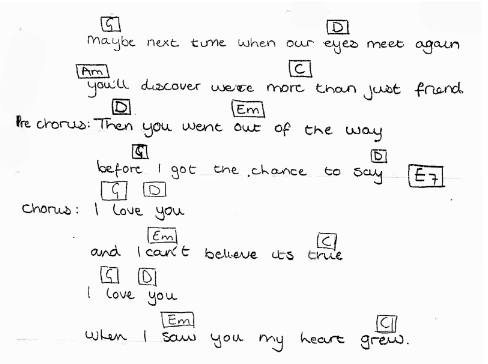 G D
Maybe next time when our eyes meet again
Am C
you'll discover we're more than just friend.
D Em
Pre chorus: Then you went out of the way
G D
before I got the chance to say E7
G D
Chorus: I love you
Em C
and I can't believe its true
G D
I love you
Em C
when I saw you my heart grew.